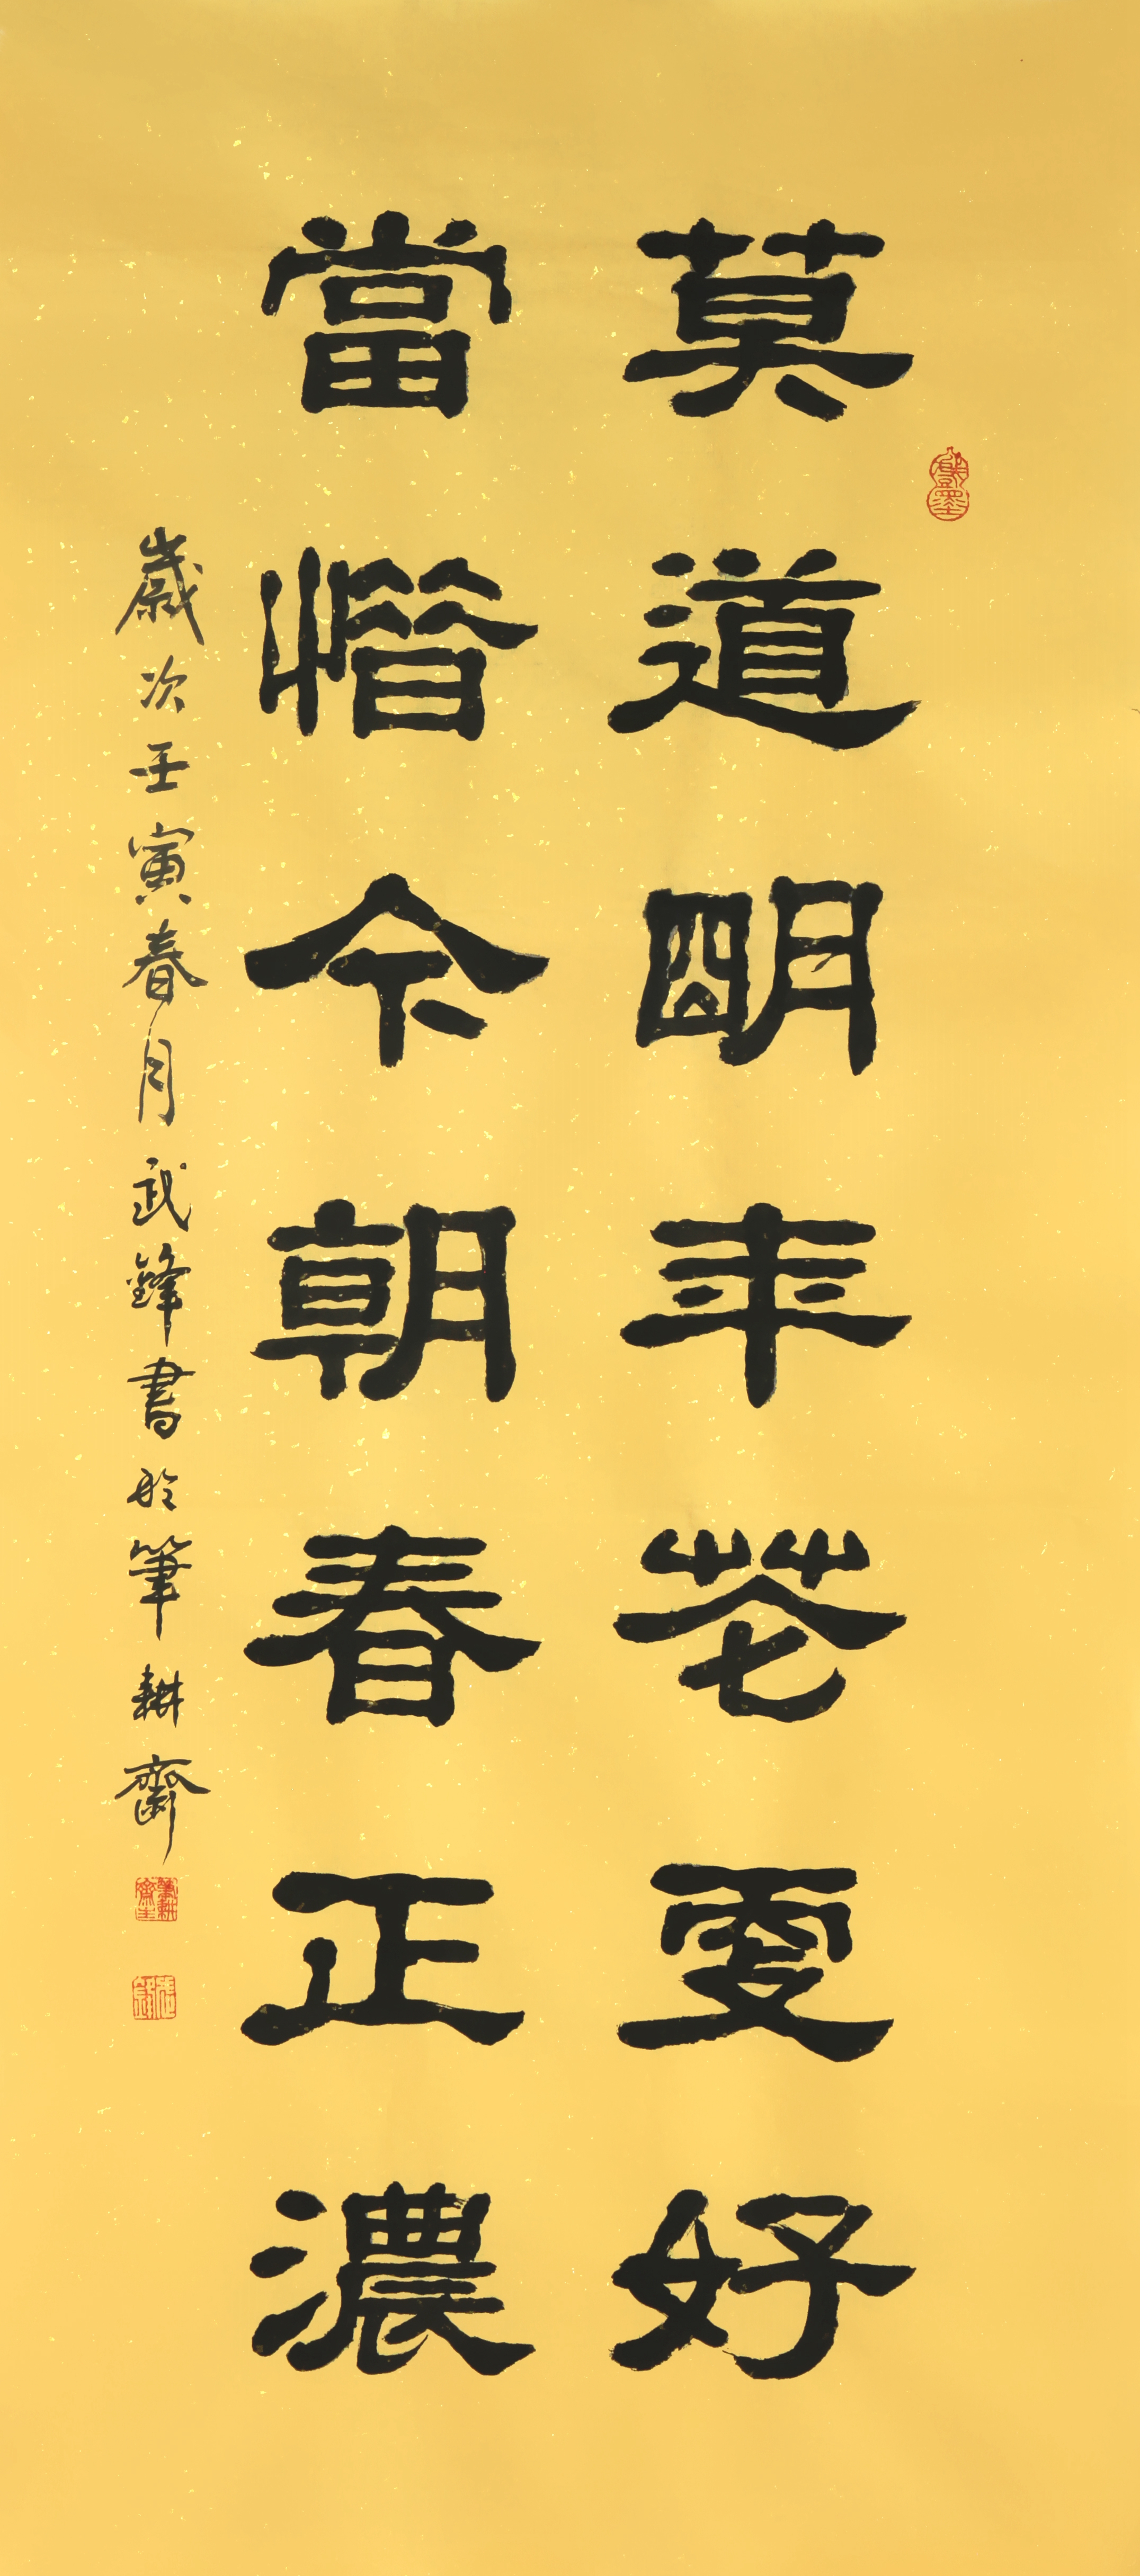 莫道明年花更好
當惜今朝春正濃
歲次壬寅春月武鋒書於筆耕齋
筆耕齋主